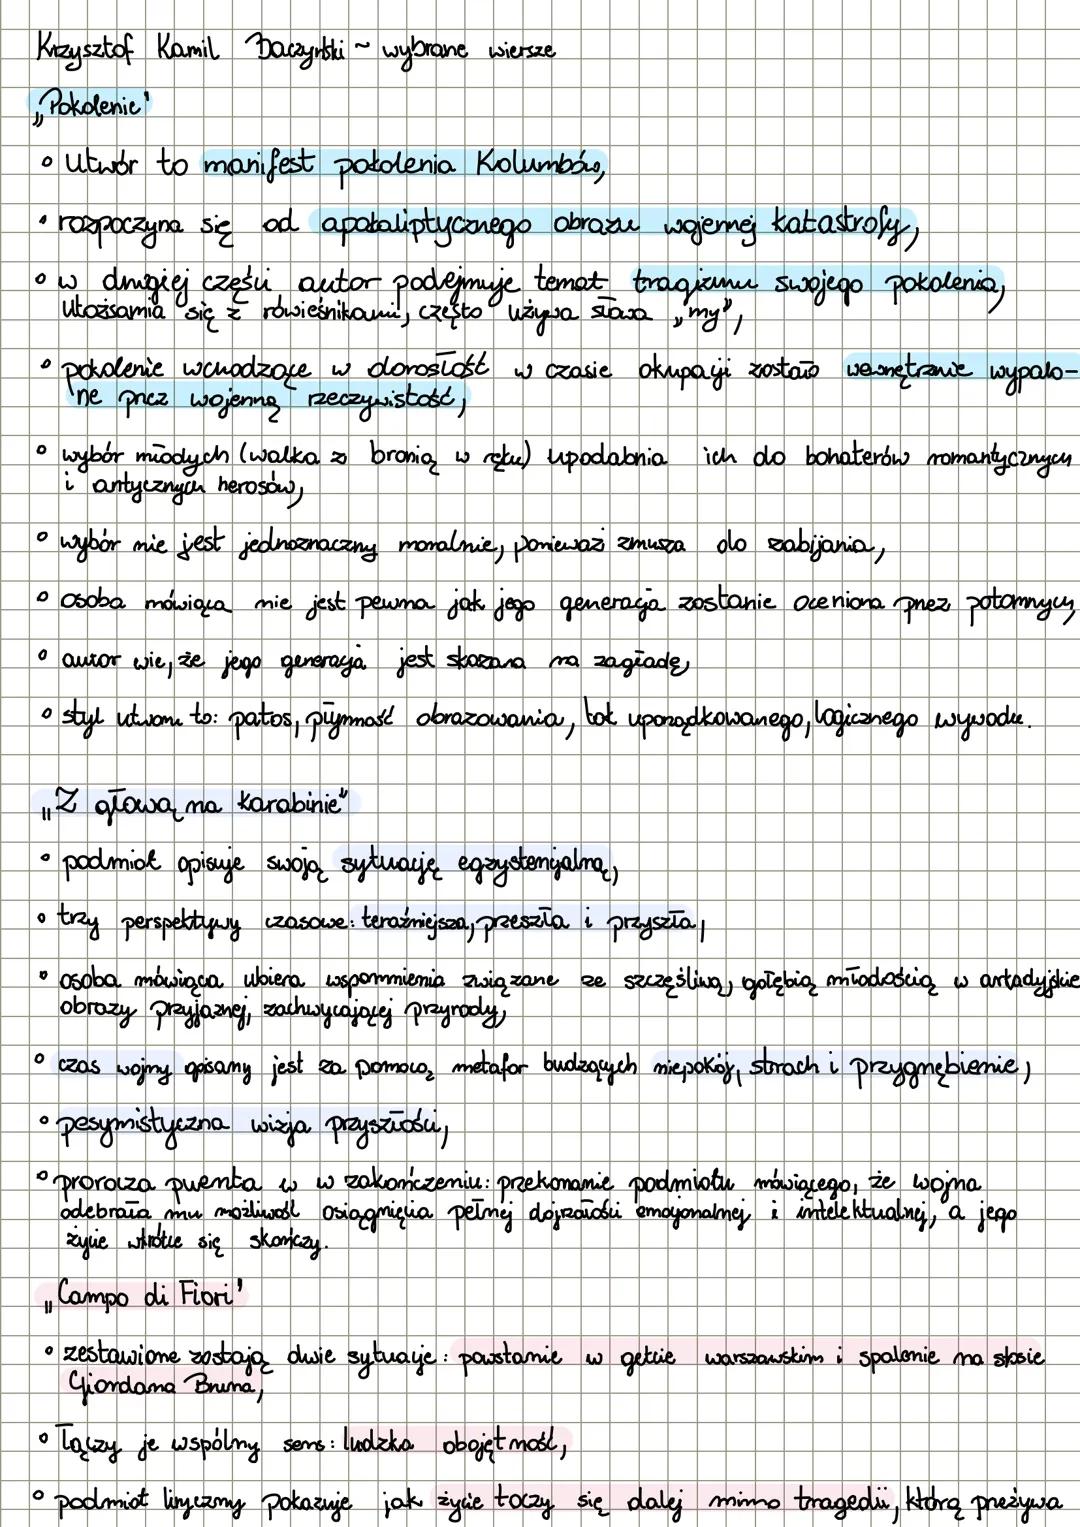 Krzysztof Kamil Baczyński ~ wybrane wiersze
„Pokolenie"
• Utwór to manifest pokolenia Kolumbów,
• rozpoczyna się od apokaliptycznego obrazu wojennej katastrofy,
• w drugiej części autor podejmuje temat tragizmu swojego pokolenia,
utożsamia się z rówieśnikami, często używa słowa „my",
• pokolenie wchodzące w dorosłość w czasie okupacji zostało wewnętrznie wypalo-
ne przez wojenną rzeczywistość,
• wybór młodych (walka z bronią w ręku) upodabnia ich do bohaterów romantycznych
i antycznych herosów,
• wybór nie jest jednoznaczny moralnie, ponieważ zmusza do zabijania,
• osoba mówiąca nie jest pewna jak jego generacja zostanie oceniona przez potomnych,
• autor wie, że jego generacja jest skazana na zagładę,
• styl utworu to: patos, płynność obrazowania, tok uporządkowanego, logicznego wywodu.
„Z głową na karabinie"
• podmiot opisuje swoją sytuację egzystencjalną,
• trzy perspektywy czasowe: teraźniejsza, przeszła i przyszła,
• osoba mówiąca ubiera wspomnienia związane ze szczęśliwą, gołębią młodością w arkadyjskie
obrazy przyjaznej, zachwycającej przyrody,
• czas wojny opisany jest za pomocą metafor budzących niepokój, strach i przygnębienie,
• pesymistyczna wizja przyszłości,
• prorocza puenta w w zakończeniu: przekonanie podmiotu mówiącego, że wojna
odebrała mu możliwość osiągnięcia pełnej dojrzałości emocjonalnej i intelektualnej, a jego
życie wkrótce się skończy.
„Campo di Fiori"
• zestawione zostają dwie sytuacje: powstanie w getcie warszawskim i spalenie na stosie
Giordana Bruna,
• łączy je wspólny sens: ludzka obojętność,
• podmiot liryczny pokazuje jak życie toczy się dalej mimo tragedii, którą przeżywa